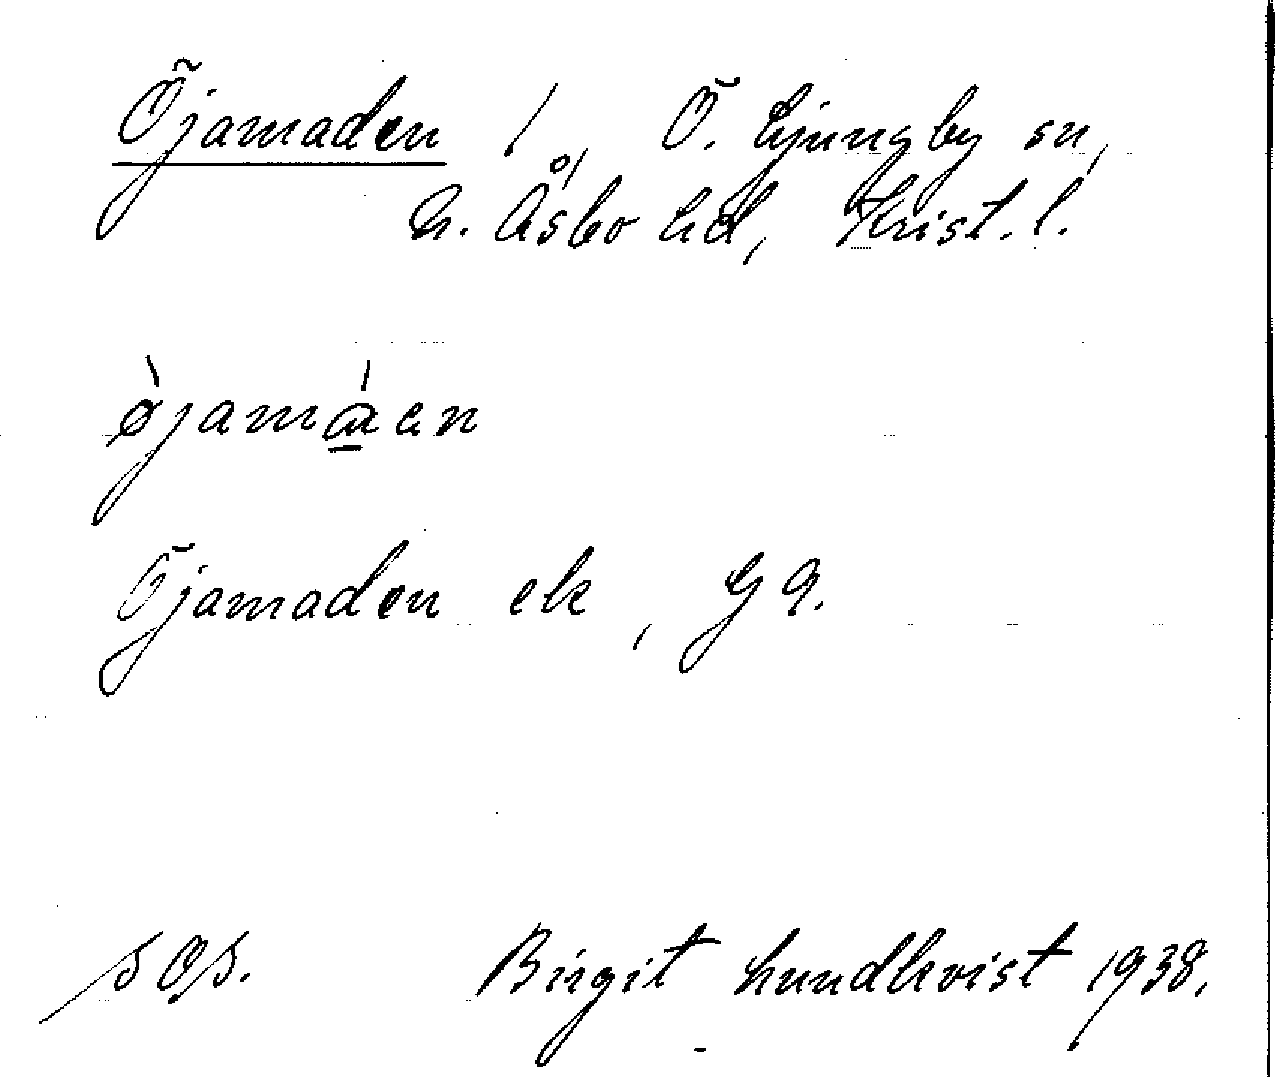 Öjamaden / Ö. Ljungby sn,
N. Åsbo hd, Krist. l.
ø̀jamáen
Öjamaden ek, G 9.
Birgit Lundkvist 1938.